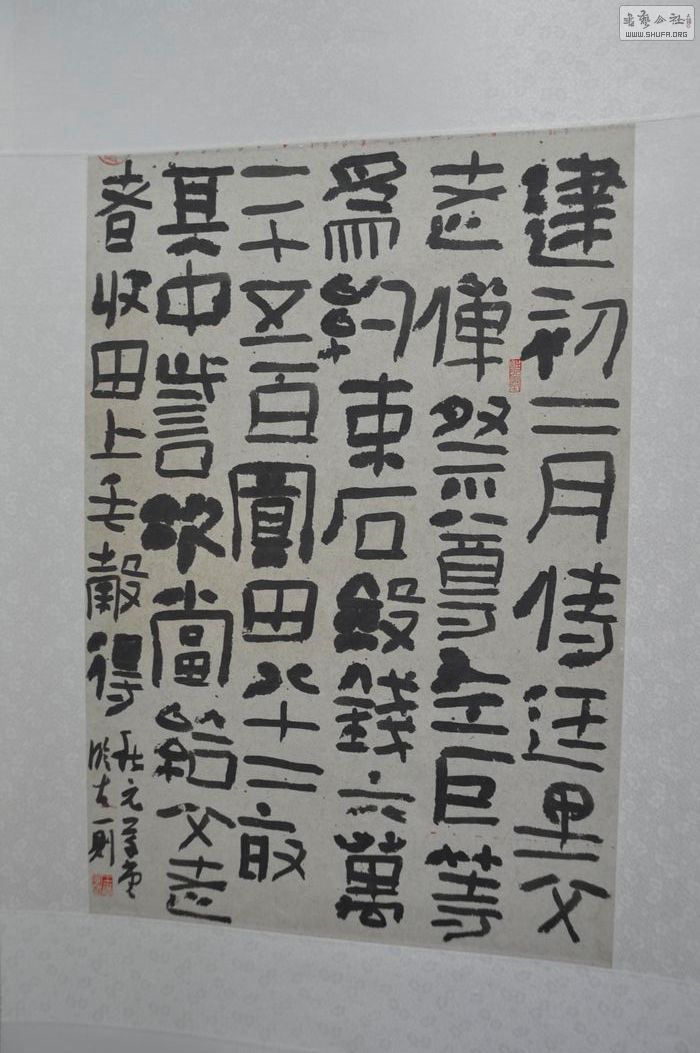 建初二月侍廷里父
老僤祭尊左巨等
為約束石斂錢六萬
一千五百買田八十二畝
其中訾次當給父老
者收田上毛穀得
書藝公社
WWW.SHUFA.ORG